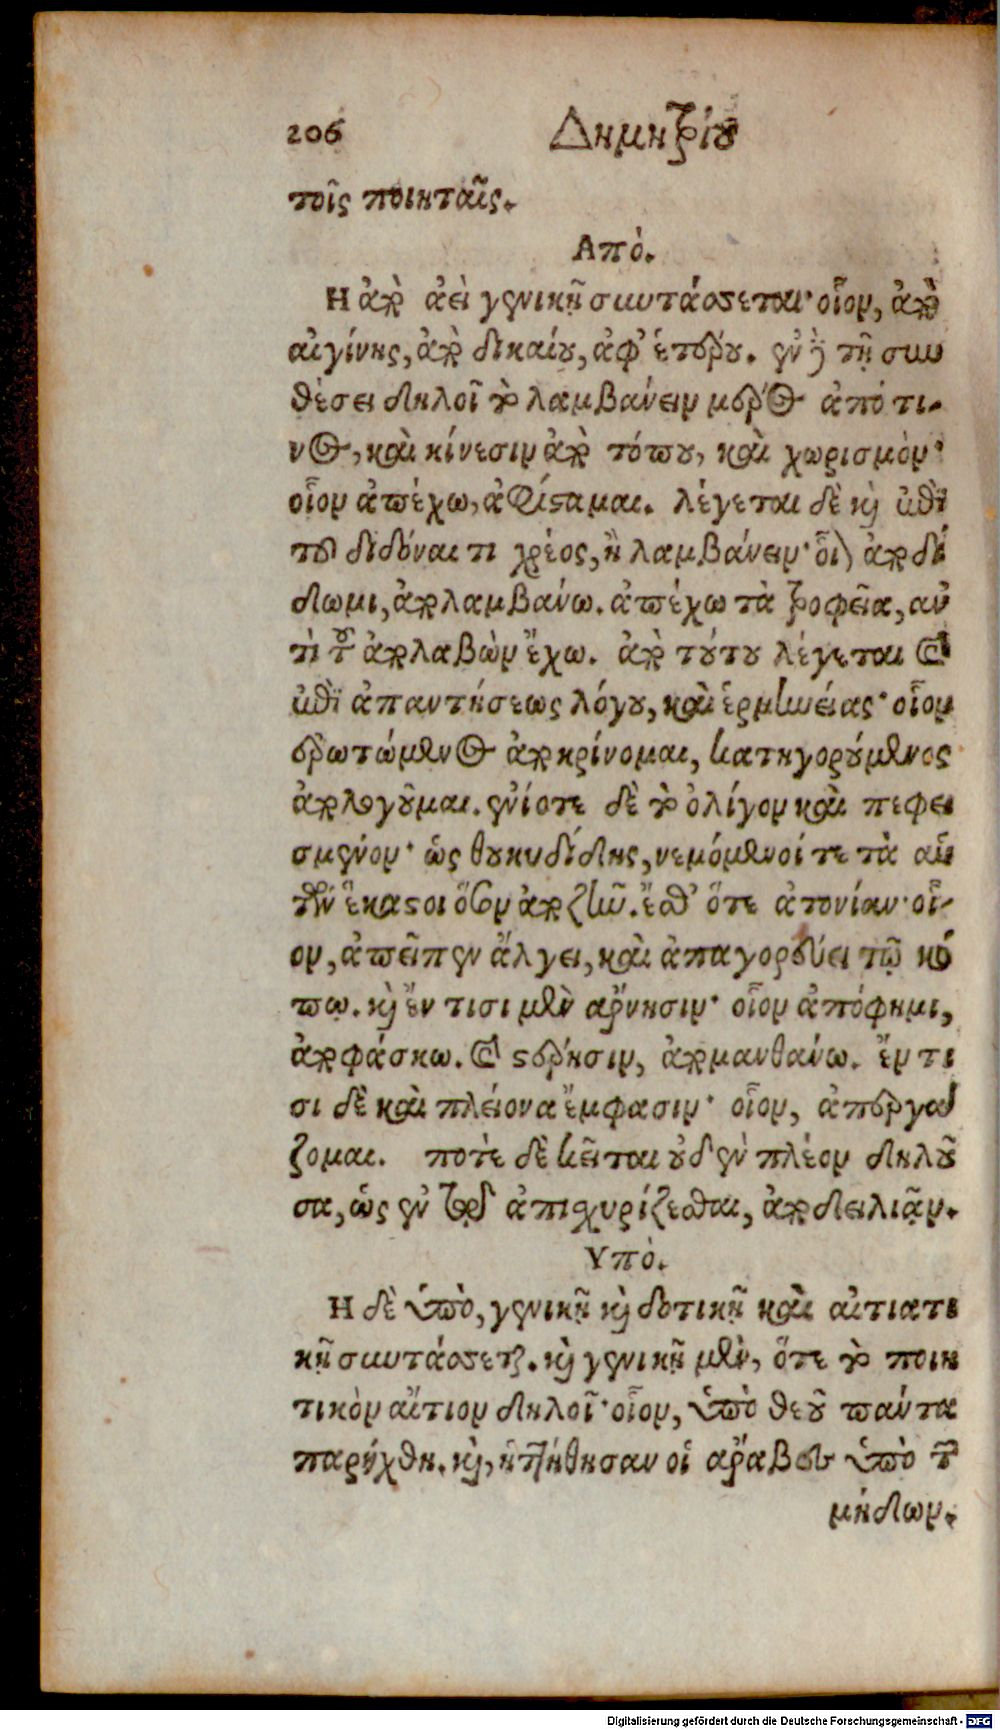 206 Δημητρίου
τοῖς ποιηταῖς.
Απὸ.
Η ἀπὸ ἀεὶ γενικῇ συντάσσεται· οἷον, ἀπὸ
αἰγίνης, ἀπὸ δικαίου, ἀφ' ἑτέρου. ἐν δὲ τῇ συν
θέσει δηλοῖ τὸ λαμβάνειν μέρος ἀπό τι-
νος, καὶ κίνεσιν ἀπὸ τόπου, καὶ χωρισμὸν·
οἷον ἀπέχω, ἀφίσταμαι. λέγεται δὲ καὶ ἐπὶ
τοῦ διδόναι τι χρέος, ἢ λαμβάνειν· οἷον ἀποδί
δωμι, ἀπολαμβάνω. ἀπέχω τὰ τροφεῖα, ἀν
τὶ τοῦ ἀπολαβὼν ἔχω. ἀπὸ τούτου λέγεται καὶ
ἐπὶ ἀπαντήσεως λόγου, καὶ ἑρμηνείας· οἷον
ἐρωτώμενος ἀποκρίνομαι, κατηγορούμενος
ἀπολογοῦμαι. ἐνίοτε δὲ τὸ ὀλίγον καὶ πεφει
σμένον· ὡς θουκυδίδης, νεμόμενοί τε τὰ αὑ
τῶν ἕκαστοι ὅσον ἀποζῆν. ἔσθ' ὅτε ἀτονίαν· οἷ-
ον, ἀπεῖπεν ἄλγει, καὶ ἀπαγορεύει τῷ κό
πῳ. καὶ ἔν τισι μὲν ἄρνησιν· οἷον ἀπόφημι,
ἀποφάσκω. καὶ στέρησιν, ἀπομανθάνω. ἔν τι
σι δὲ καὶ πλείονα ἔμφασιν· οἷον, ἀπεργά
ζομαι. ποτὲ δὲ κεῖται οὐδὲν πλέον δηλοῦ
σα, ὡς ἐν τῷ ἀπισχυρίζεσθαι, ἀποδειλιᾷν.
Υπὸ.
Η δὲ ὑπὸ, γενικῇ καὶ δοτικῇ καὶ αἰτιατι
κῇ συντάσσεται. καὶ γενικῇ μὲν, ὅτε τὸ ποιη
τικὸν αἴτιον δηλοῖ· οἷον, ὑπὸ θεοῦ πάντα
παρήχθη. καὶ, ἡττήθησαν οἱ ἄραβες ὑπὸ τῶν
μήδων.
Digitalisierung gefördert durch die Deutsche Forschungsgemeinschaft - DFG